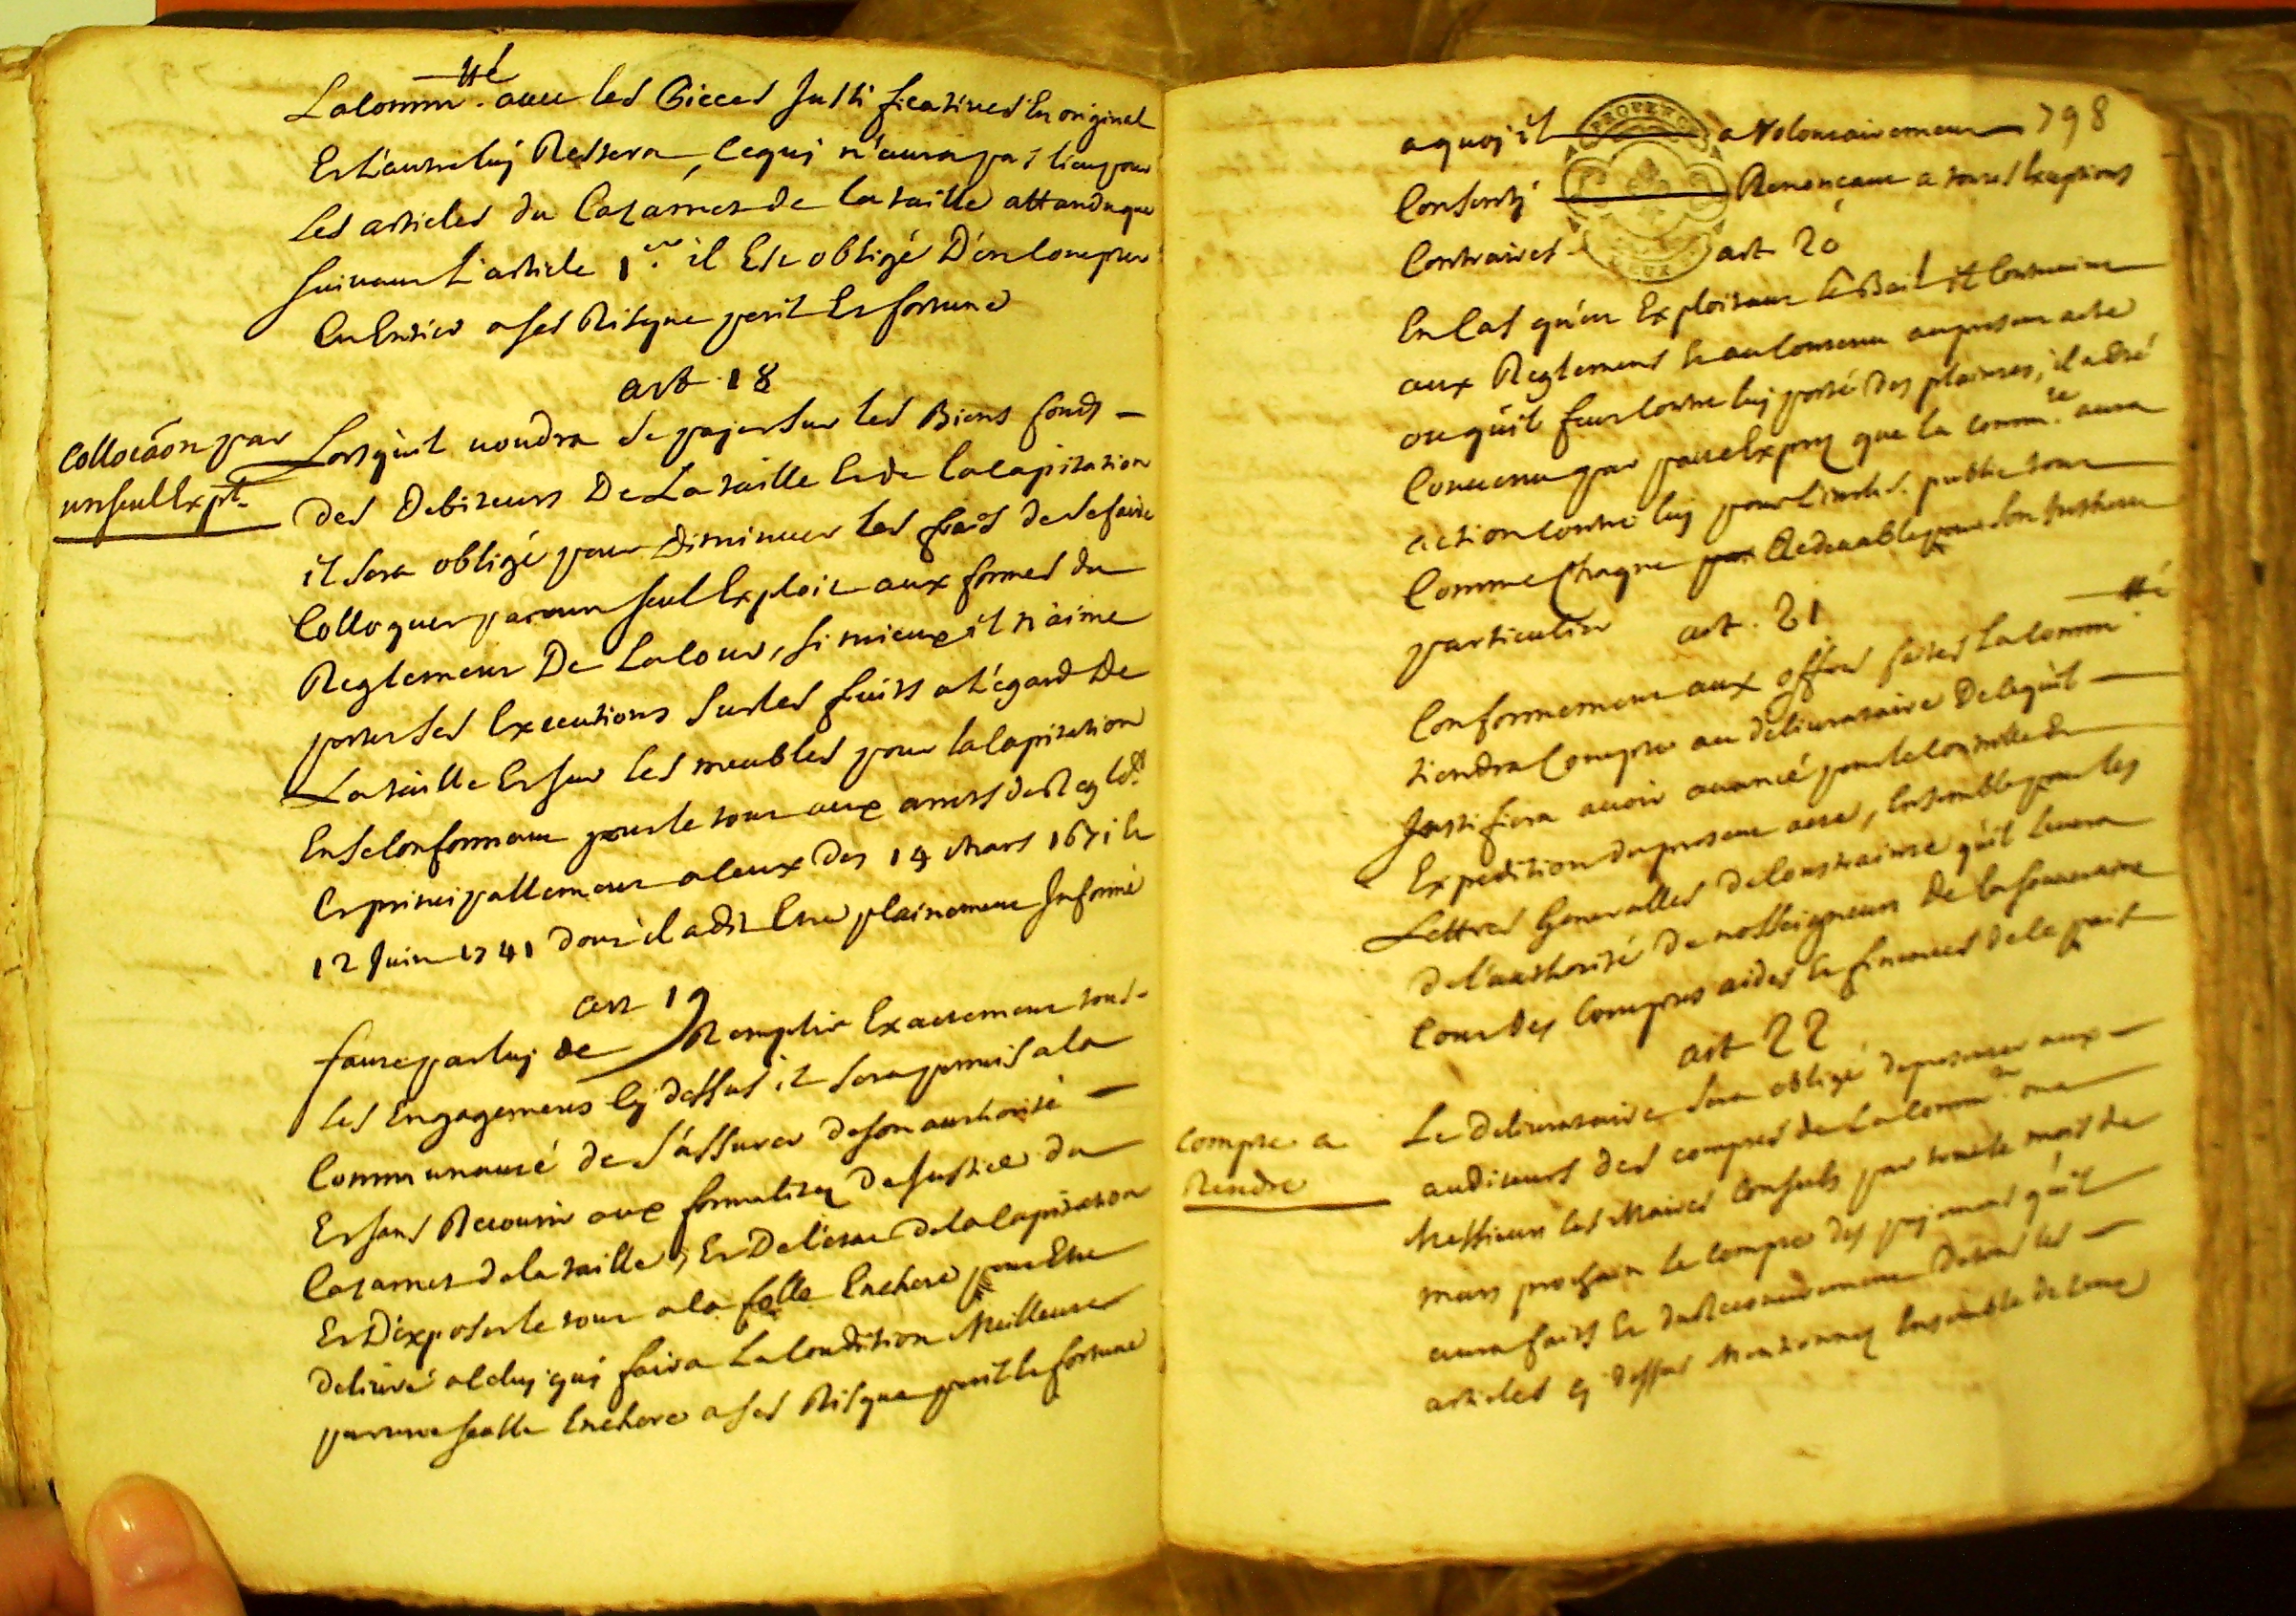 La comm.tté avec les Pieces Justificatives En original
Et L'autre luy Restera, Ce quy n'aura pas lieu pour
Les articles du Cazarnet de la taille attandu que
suivant L'article 1er. il Est obligé D'en Compter
En Entier a ses Risque peril Et fortune
art. 18
Collocãon par
un seul Expt.
Lorsqu'il voudra se payer sur les Biens fonds
Des Debiteurs De La taille Et de la capitation
il sera obligé pour Diminuer les frais de se faire
Colloquer par un seul Exploit aux formes du
Reglement De La Cour, si mieux il n'aime
porter ses Executions sur les fruits a L'égard De
La taille Et sur les meubles pour la Capitation
En se Conformant pour le tout aux arrets de Regldt.
Et principallement a Ceux Des 14 Mars 1671 Et
12 Juin 1741 dont il a dit Etre plainement Informé
art 19
faute par luy de Remplir Exactement tous
les Engagements Cy dessus il sera permis a la
Communauté de s'assurer de son authorité
Et sans Recourir aux formalitez De Justice du
Cazarnet de la taille, Et De l'état de la Capitation
Et D'exposer le tout a la folle Enchere pour Etre
Délivré a Celuy quy faira La Condition Meilleure
par une seulle Enchere a ses Risque peril Et fortune
a quoy il a Volontairement 798
PROVENCE
Consenty Renonçant a toutes Exeptions
Contraires art 20
En Cas qu'en Exploitant le Bail il Contrevint
aux Reglements Et au Contenu au present acte
ou qu'il feut Contre luy porté Des plaintes, il a été
Convenu par pacte Exprez que la comm.té aura
action Contre luy pour L'interet public tout
Comme Chaque Redevable pour son Interest
particulier art. 21
Conformement aux offres faites La Comm.tté
tiendra Compte au délivrataire De ce qu'il
Justifiera avoir avancé pour le Controlle Et
Expedition du present acte, Ensemble pour les
Lettres Generalles De Contrainte qu'il levera
De l'authorité De nosseigneurs De la souveraine
Cour Des Comptes aides Et finances de ce païs
art 22
Compte a
Rendre
Le Délivrataire sera obligé de presenter aux
auditeurs des comptes de La Comm.té ou a
Messieurs les Maires Consuls par tout le mois de
mars prochain Le Compte des payements qu'il
aura faits Et du Recouvrement De tous les
articles cy dessus Mentionnez Ensemble de tous